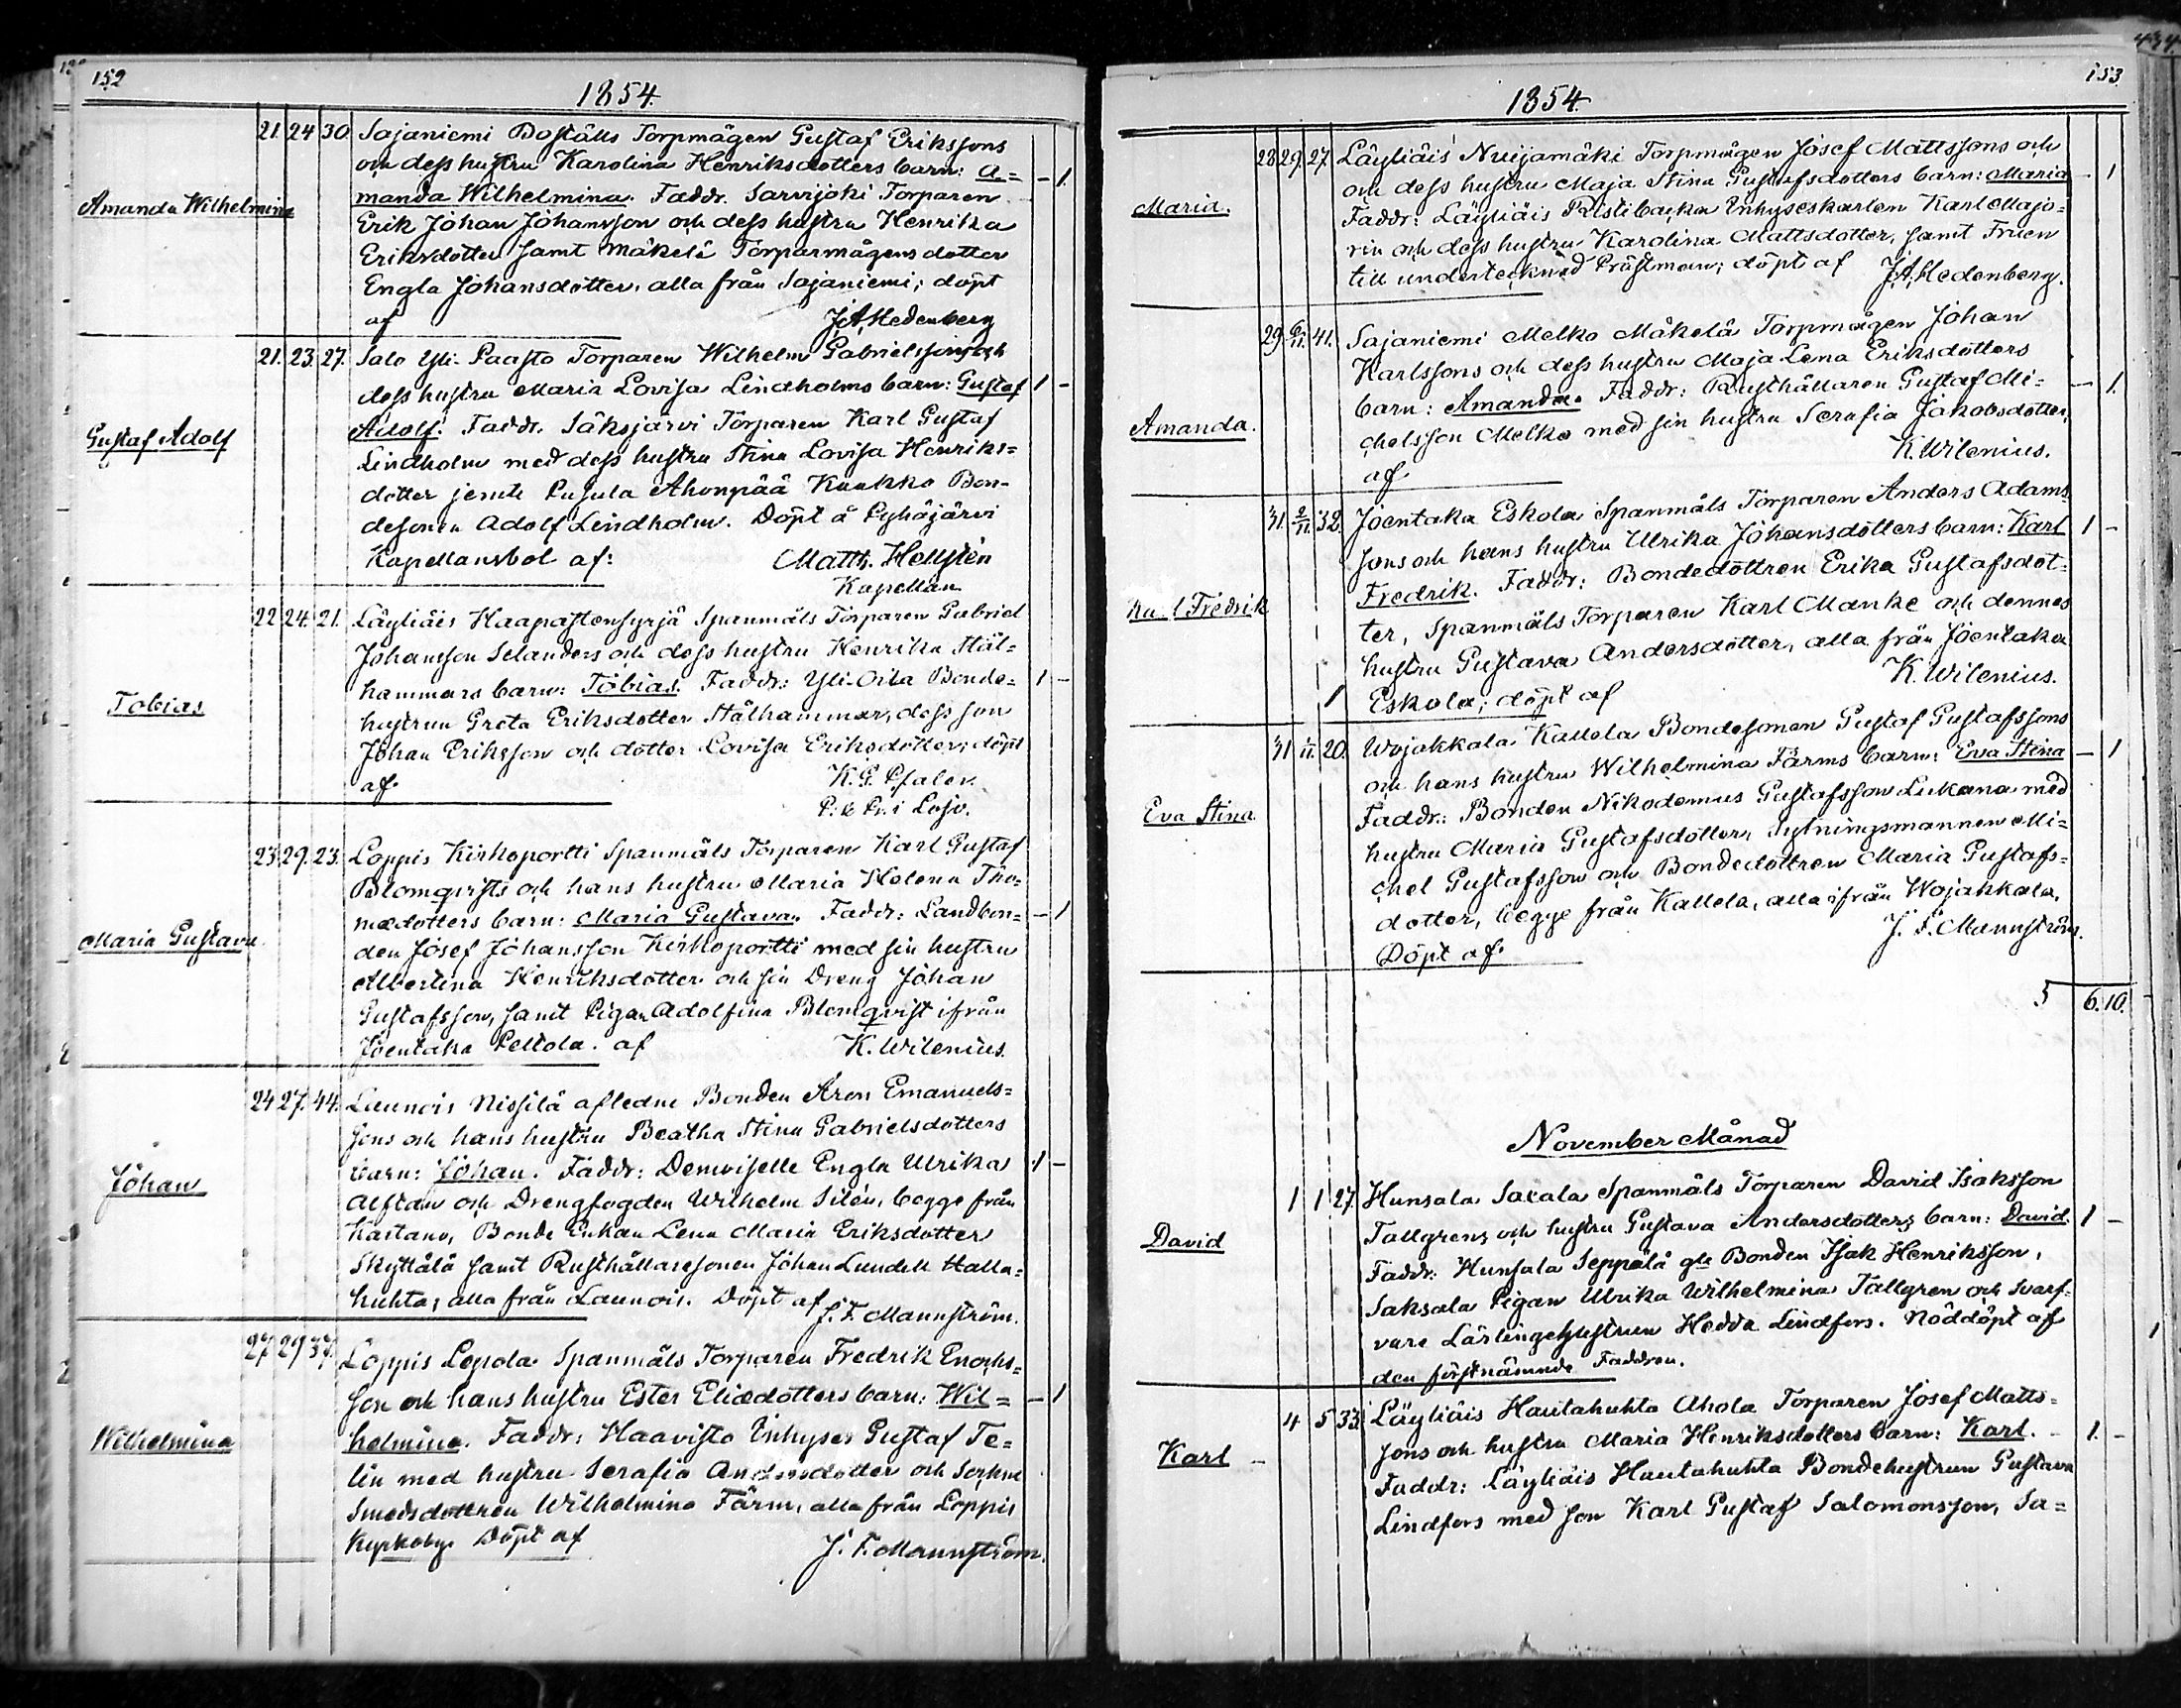 152
1854.
21. 24 30. Sajaniemi Boställs Torpmågen Gustaf Erikssons
och dess hustru Karolina Henriksdotters barn: A= - 1.
Amanda Wilhelmina
manda Wilhelmina. Faddr. Sarvijoki Torparen
Erik Johan Johansson och dess hustru Henrika
Eriksdotter samt Mäkelä Torparmågens dotter
Engla Johansdotter, alla från Sajaniemi; döpt
af J. A. Hedenberg
21. 23. 27. Salo Yli-Paasto Torparen Wilhelm Gabrielssons och
dess hustru Maria Lovisa Lindholms barn: Gustaf 1 -
Gustaf Adolf
Adolf. Faddr. Säksjärvi Torparen Karl Gustaf
Lindholm med dess hustru Stina Lovisa Henriks=
dotter jemte Pusula Ahonpää Kuukko Bon-
desonen Adolf Lindholm. Döpt å Pyhäjärvi
Kapellansbol af: Matth. Hellstén
Kapellan
22 24. 21. Läyliäis Haapastensyrjä Spanmåls Torparen Gabriel
Johansson Selanders och dess hustru Henrika Stål=
Tobias
hammars barn: Tobias. Faddr: Yli-Oita Bonde= 1 -
hustrun Greta Eriksdotter Stålhammar, dess son
Johan Eriksson och dotter Lovisa Eriksdotter; döpt
af K. G. Psaler.
P: & Pr. i Lojo.
23 29. 23. Loppis Kirkoportti Spanmåls Torparen Karl Gustaf
Blomqvists och hans hustru Maria Helena Tho=
mædotters barn: Maria Gustava. Faddr: Landbon= - 1
Maria Gustava
den Josef Johansson Kirkoportti med sin hustru
Albertina Henriksdotter och sin Dreng Johan
Gustafsson, samt Pigan Adolfina Blomqvist ifrån
Joentaka Peltola. af K. Wilenius.
24 27. 44. Launois Nissilä afledne Bonden Aron Emanuels=
sons och hans hustru Beatha Stina Gabrielsdotters
Johan
barn: Johan. Faddr: Demoiselle Engla Ulrika 1 -
Alftan och Drengfogden Wilhelm Silén, begge från
Kartano, Bonde Enkan Lena Maria Eriksdotter
Skyttälä samt Rusthållaresonen Johan Lundell Halla=
huhta, alla från Launois. Döpt af J. F. Mannström.
27 29 37. Loppis Lepola Spanmåls Torparen Fredrik Enochs=
son och hans hustru Ester Eliædotters barn: Wil= - 1
Wilhelmina
helmina. Faddr: Haavisto Inhyses Gustaf Te=
lin med hustru Serafia Andersdotter och Sockne
Smedsdottren Wilhelmina Färm, alla från Loppis
Kyrkoby. Döpt af J. F. Mannström.
153
1854.
28 29. 27. Läyliäis Nuijamäki Torpmågen Josef Mattssons och
och dess hustru Maja Stina Gustafsdotters barn: Maria - 1
Maria.
Faddr: Läyliäis Ristibacka Inhyseskarlen Karl Majo=
rin och dess hustru Karolina Mattsdotter, samt Fruen
till undertecknad Prästman; döpt af J. A. Hedenberg.
29. 6/11. 41. Sajaniemi Melko Mäkelä Torpmågen Johan
Karlssons och dess hustru Maja Lena Eriksdotters
barn: Amanda. Faddr: Rusthållaren Gustaf Mi= - 1.
Amanda.
chelsson Melko med sin hustru Serafia Jakobsdotter,
af K. Wilenius.
31. 2/11. 32. Joentaka Eskola Spanmåls Torparen Anders Adams
sons och hans hustru Ulrika Johansdotters barn: Karl 1 -
Karl Fredrik
Fredrik. Faddr: Bondedottren Erika Gustafsdot=
ter, Spanmåls Torparen Karl Manke och dennes
hustru Gustava Andersdotter, alla från Joentaka
Eskola; döpt af K. Wilenius.
31 11. 20. Wojakkala Kallela Bondesonen Gustaf Gustafssons
och hans hustru Wilhelmina Färms barn: Eva Stina - 1
Eva Stina
Faddr: Bonden Nikodemus Gustafsson Lukana med
hustru Maria Gustafsdotter, Sytningsmannen Mi=
chel Gustafsson och Bondedottren Maria Gustafs=
dotter, begge från Kallela, alla ifrån Wojakkala.
Döpt af J. F. Mannström.
6. 10.
November Månad
1 1 27. Hunsala Saxala Spanmåls Torparen David Isaksson
Tallgrens och hustru Gustava Andersdotters barn: David. 1 -
David
Faddr: Hunsala Seppälä gle Bonden Isak Henriksson,
Saksala Pigan Ulrika Wilhelmina Tallgren och Svarf-
vare Lärlingehustrun Hedda Lindfors. Nöddöpt af
den förstnämnde Faddren.
4 5 33. Läyliäis Hautahuhta Ahola Torparen Josef Matts=
sons och hustru Maria Henriksdotters barn: Karl. 1. -
Karl
Faddr: Läyliäis Hautahuhta Bondehustrun Gustava
Lindfors med son Karl Gustaf Salomonsson, Sa=